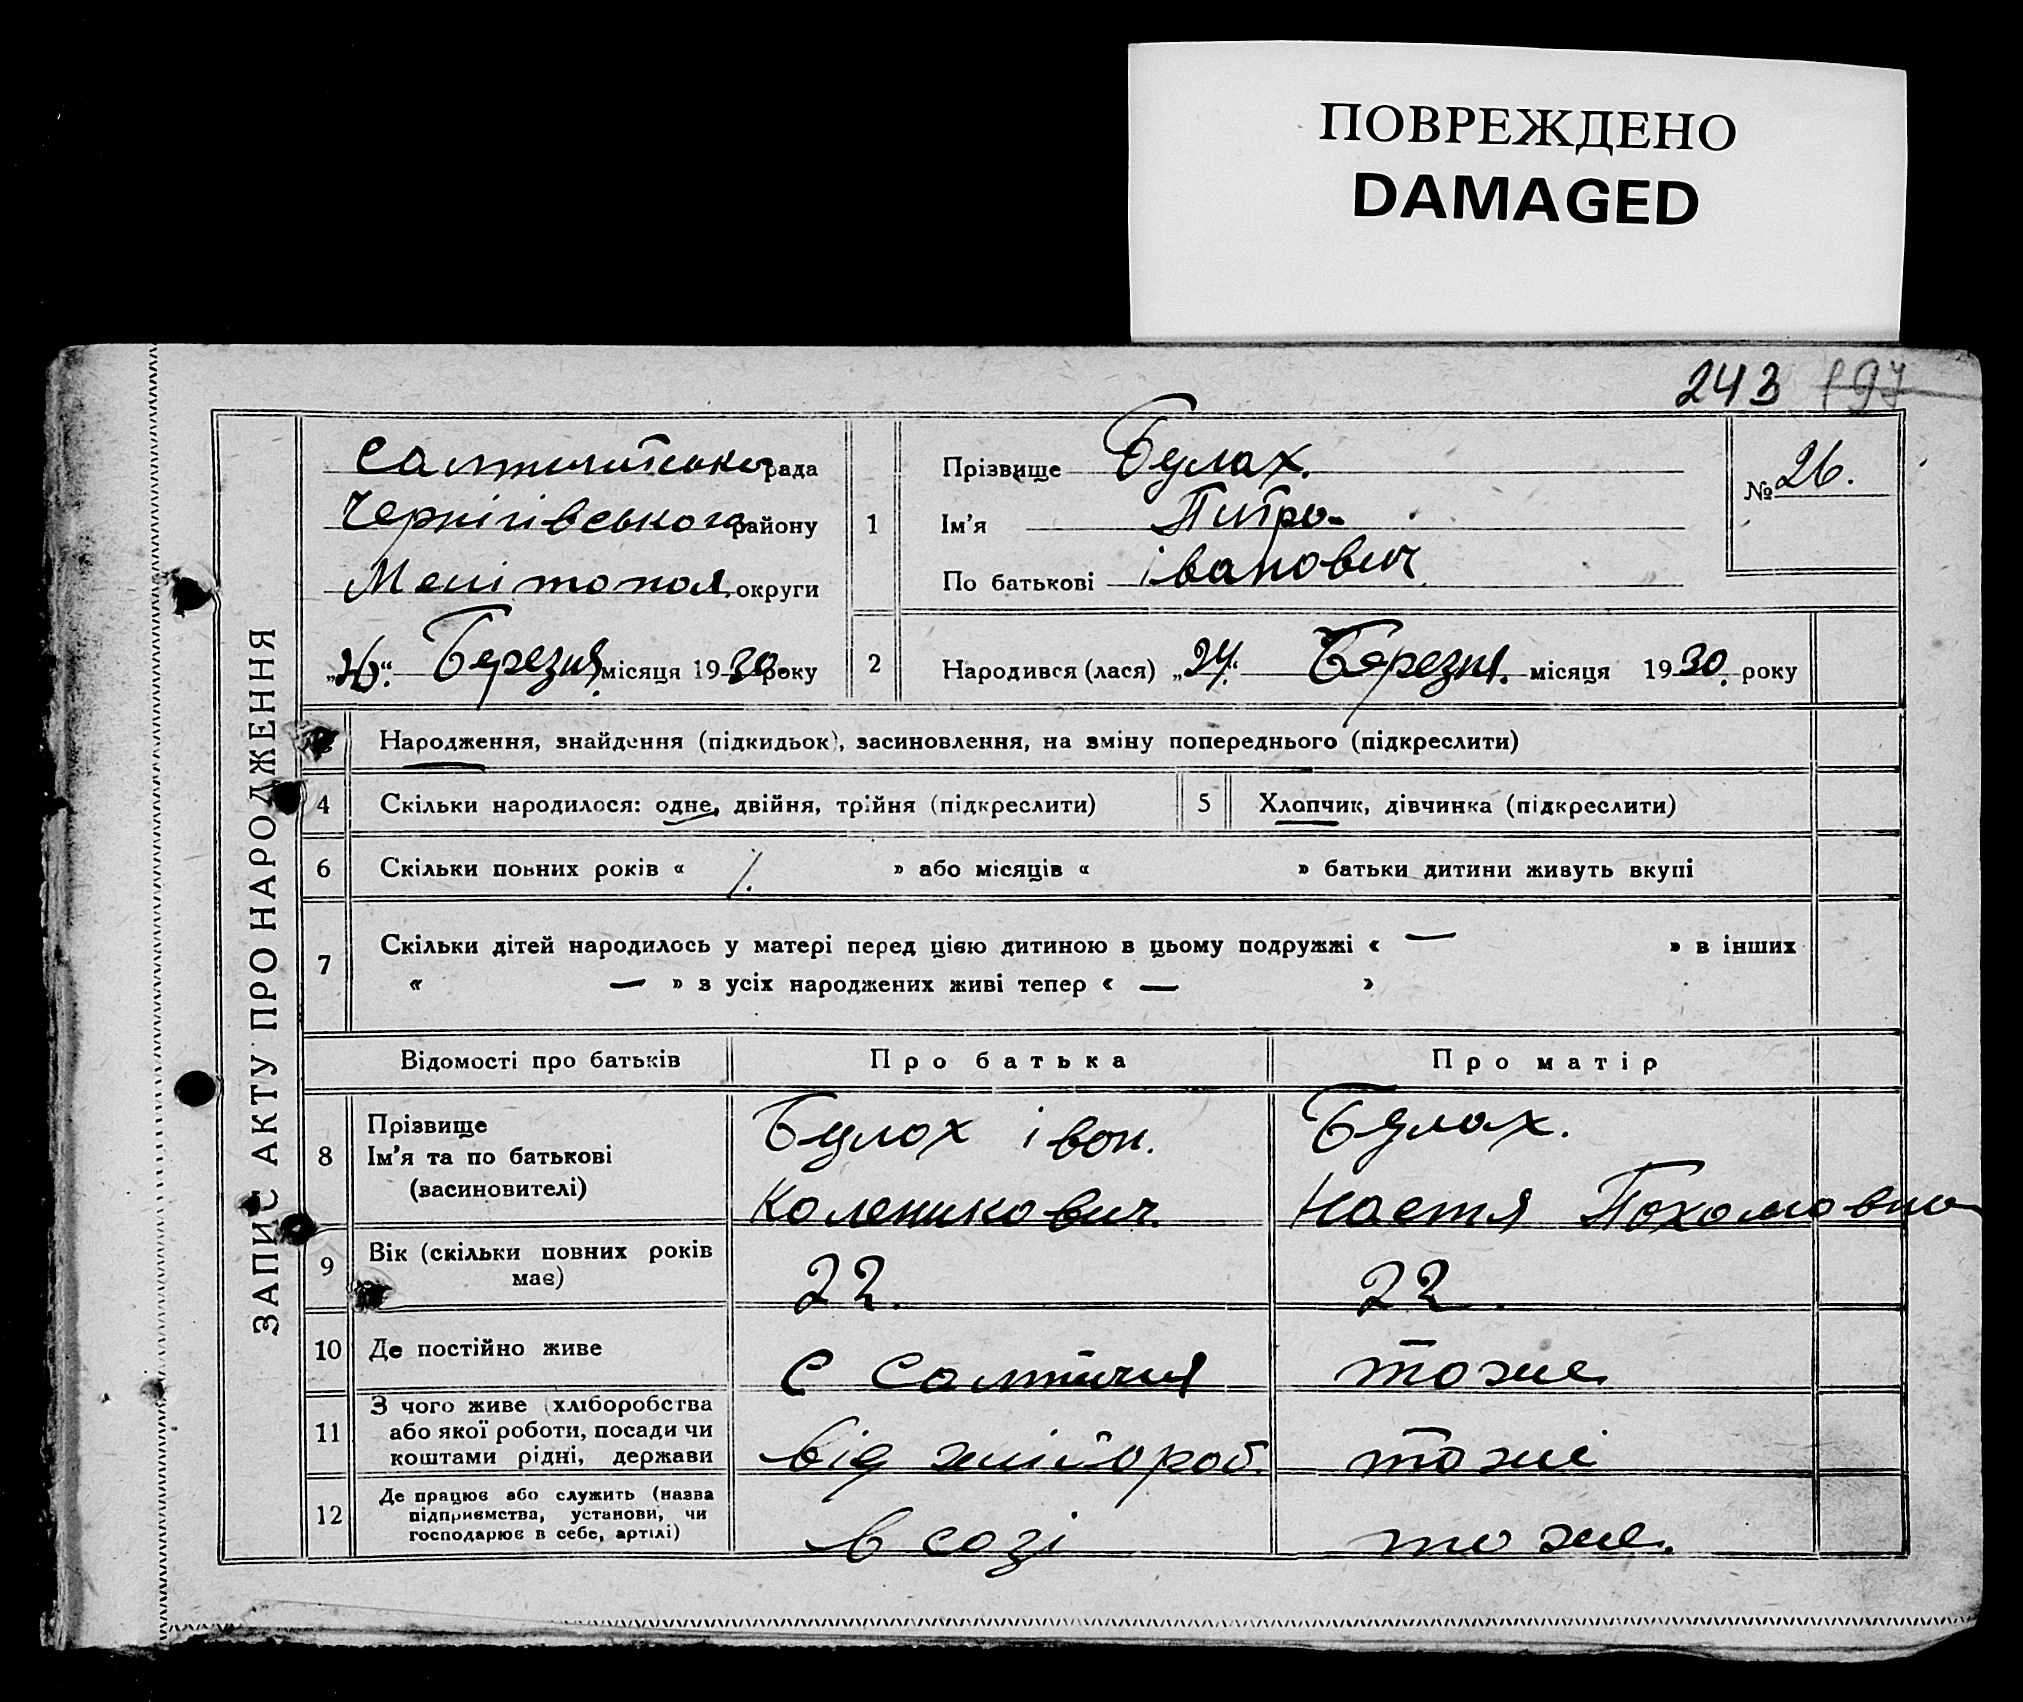 ПОВРЕЖДЕНО
DAMAGED
243 197
ЗАПИС АКТУ ПРО НАРОДЖЕННЯ
рада
Чернігівського району
Мелітопол. округи
„26“ Березня місяця 1930 року
1
Прізвище Булах.
Ім'я Питро
По батькові іванович
№ 26.
2
Народився (лася) „24“ Березня. місяця 1930. року
Народження, знайдення (підкидьок), засиновлення, на зміну попереднього (підкреслити)
4 Скільки народилося: одне, двійня, трійня (підкреслити) 5 Хлопчик, дівчинка (підкреслити)
6 Скільки повних років « 1. » або місяців « » батьки дитини живуть вкупі
7 Скільки дітей народилось у матері перед цією дитиною в цьому подружжі « — » в інших
« — » з усіх народжених живі тепер « — »
Відомості про батьків Про батька Про матір
8 Прізвище
Ім'я та по батькові
(засиновителі)
Булах іван.
Каленикович.
Булах.
Настя Пахамовна
9 Вік (скільки повних років
має)
22. 22.
10 Де постійно живе с Салтичия тоже
11 З чого живе (хліборобства
або якої роботи, посади чи
коштами рідні, держави
від хлібороб. тоже
12 Де працює або служить (назва
підприємства, установи, чи
господарює в себе, артілі)
в созі тоже.